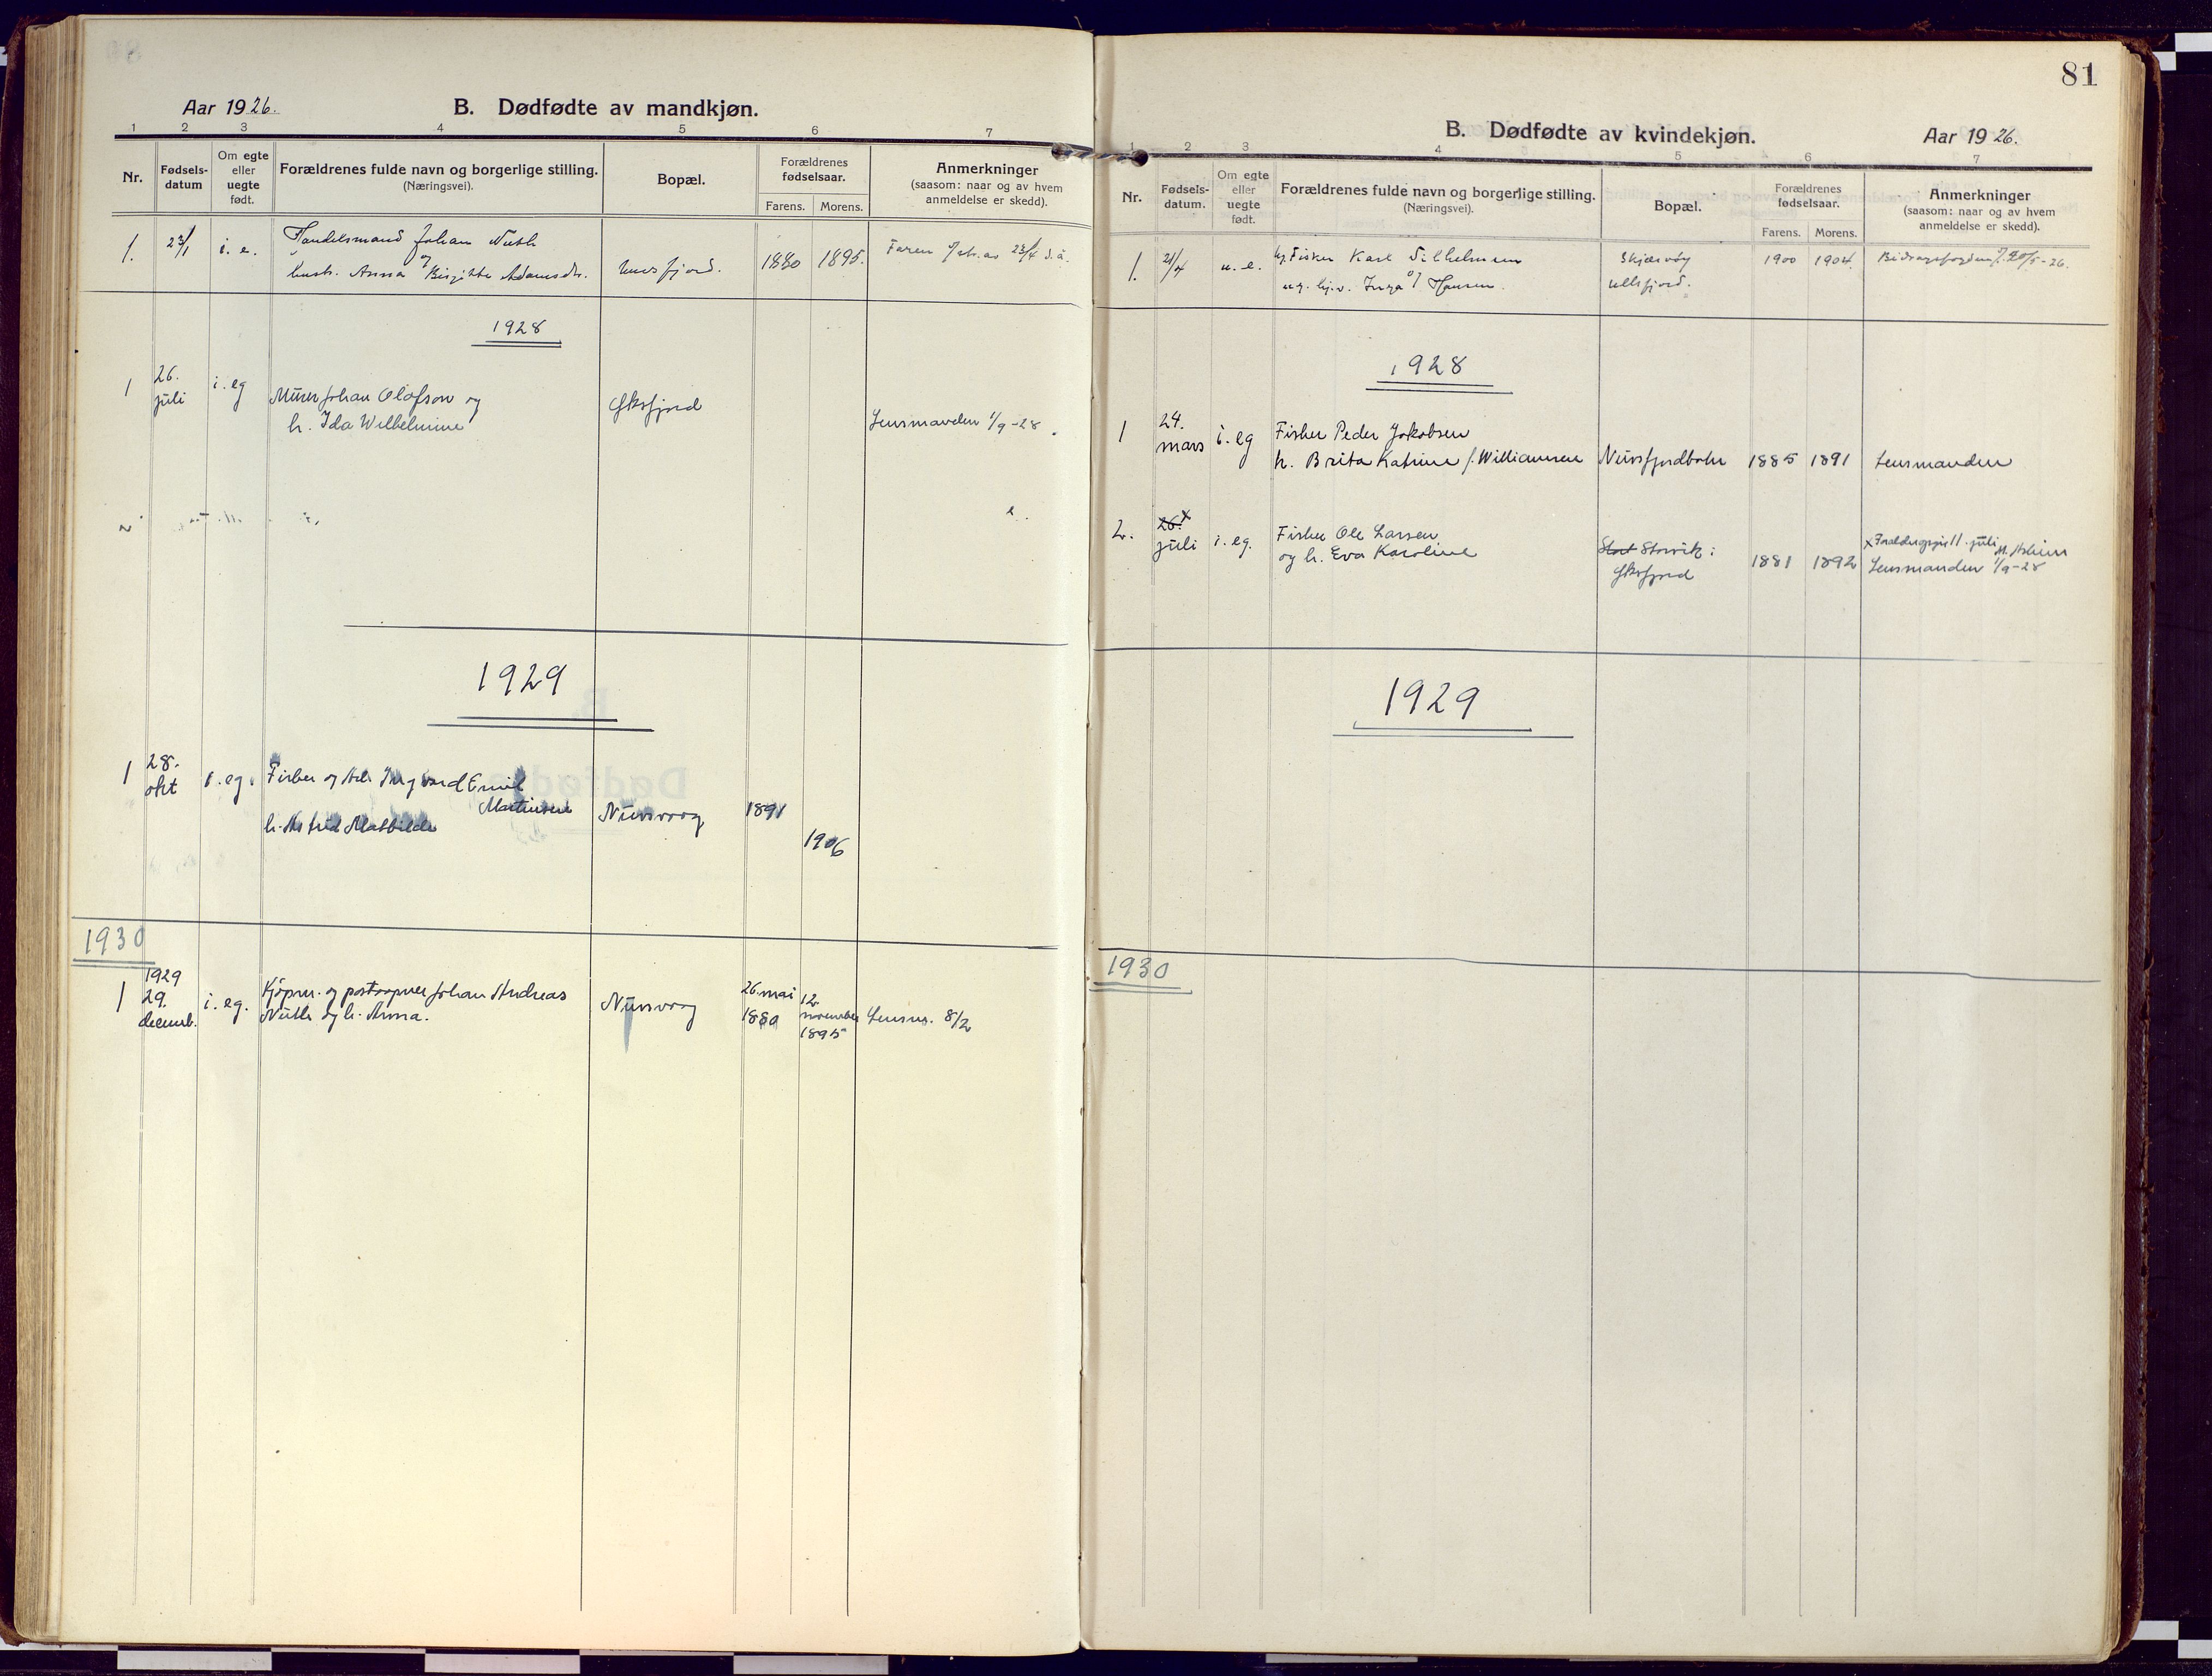 Aar 1926.
B. Dødfødte av mandkjøn.
1 2 3 4 5 6 7
Nr.
Fødsels-
datum
Om egte
eller
uegte
født.
Forældrenes fulde navn og borgerlige stilling.
(Næringsvei).
Bopæl.
Forældrenes
fødselsaar.
Farens. Morens.
Anmerkninger
(saasom: naar og av hvem
anmeldelse er skedd).
1. 23/1 i. e. Handelsmand Johan
og
hustr. Anna Birgitte Adamsdtr. 1880 1895. Faren 23/4 d. å.
1928
1 26.
juli
i. eg
Murer Johan Olofson og
h. Ida Wilhelmine
Øksfjord
Lensmanden 1/9-28.
1929
1 28.
okt
i. eg.
Fisker og Arb. Ingvard Emil
Martinsen
h. Astrid Mathilde
Nuvsvaag
1891
1906
1930
1 1929
29.
decemb.
i. eg.
Kjøpm. og postaapner Johan Andreas
og h. Anna.
Nuvsvaag
26. mai
1880
12.
november
1895
Lensm. 8/2
81
B. Dødfødte av kvindekjøn.
Aar 1926.
1 2 3 4 5 6 7
Nr.
Fødsels-
datum.
Om egte
eller
uegte
født.
Forældrenes fulde navn og borgerlige stilling.
(Næringsvei).
Bopæl.
Forældrenes
fødselsaar.
Farens. Morens.
Anmerkninger
(saasom: naar og av hvem
anmeldelse er skedd).
1. 21/4 u. e. Fisker Karl
og
Inga Hansen.
Skjærvøy
Ullsfjord.
1900 1904.
1928
1 24.
mars
i. eg
Fisker Peder Jakobsen
h. Brita Katrine f. Williamsen Nuvsfjordbotn 1885 1891 Lensmanden
2. 26. x
juli
i. eg.
Fisker Ole Larsen
og h. Eva Karoline
Storvik i
Øksfjord
1881 1892
x 11. juli
Lensmanden 1/9-28
1929
1930